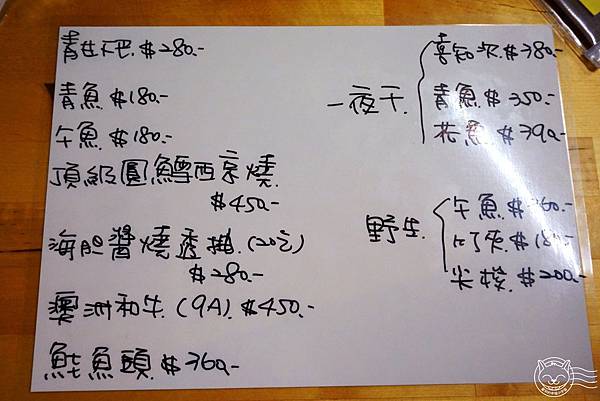 青甘下巴.$280.-
青魚$180.-
午魚.$180.-
頂級圓鱈西京燒.
$450.-
海胆醬燒透抽.(20分)
$280.-
澳洲和牛.(9A).$450.-
魠魚頭.$360.-
一夜干.
喜知次.$380.-
青魚.$350.-
花魚.$390.-
野生.
午魚.$360.-
$180.-
尖梭.$200.-